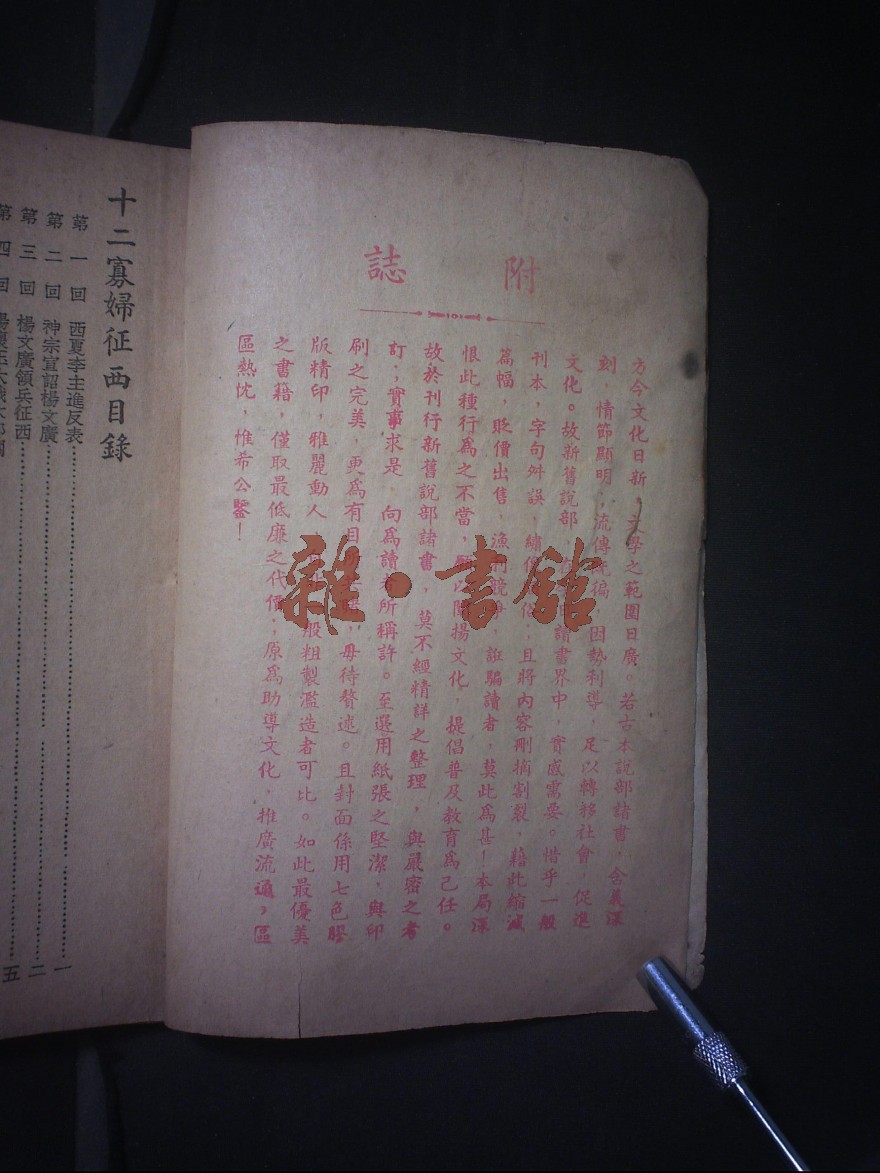 附誌
方今文化日新，文學之範圍日廣。若古本說部諸書，含義深
刻，情節顯明，流傳旣徧，因勢利導，足以轉移社會，促進
文化。故新舊說部，讀書界中，實感需要。惜乎一般
刊本，字句舛誤，繡像俗，且將內容刪摘割裂，藉此縮減
篇幅，貶價出售，漁利競爭，誑騙讀者，莫此爲甚！本局深
恨此種行爲之不當，願以闡揚文化，提倡普及教育爲己任。
故於刊行新舊說部諸書，莫不經精詳之整理，與嚴密之考
訂；實事求是，向爲讀者所稱許。至選用紙張之堅潔，與印
刷之完美，更爲有目，毋待贅述。且封面係用七色膠
版精印，雅麗動人，般粗製濫造者可比。如此最優美
之書籍，僅取最低廉之代價；原爲助導文化，推廣流通，區
區熱忱，惟希公鑒！
雜·書館
十二寡婦征西目錄
第一回 西夏李主進反表……一
第二回 神宗宣詔楊文廣……二
第三回 楊文廣領兵征西……五
第四回